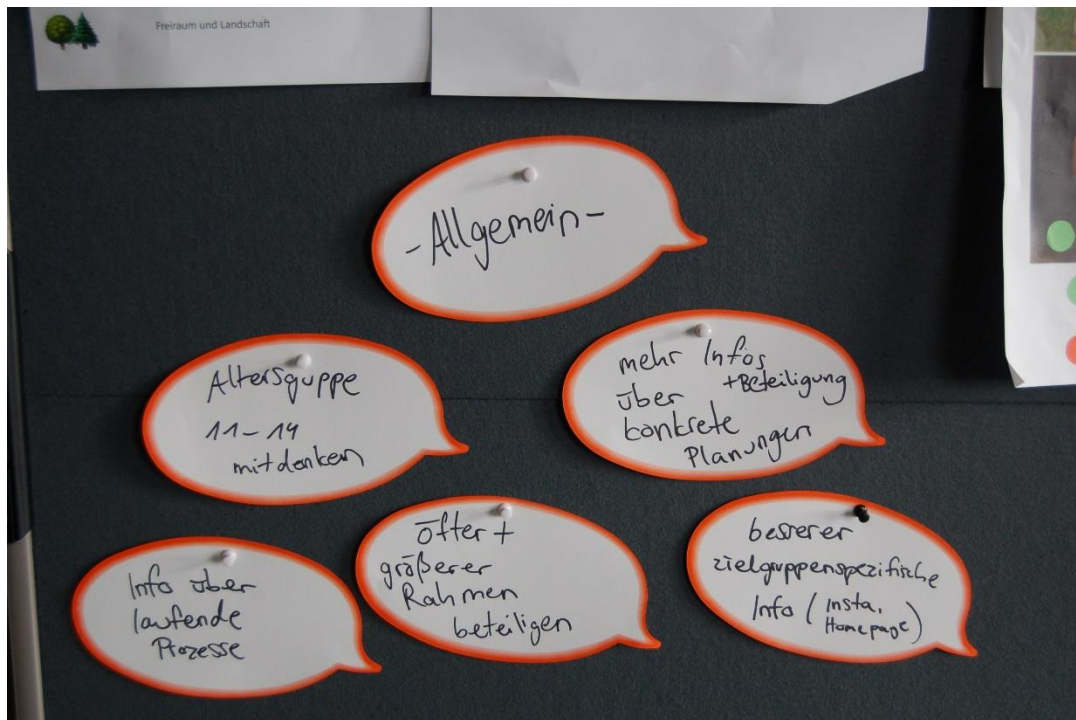 Freiraum und Landschaft
-Allgemein-
Altersguppe
11-14
mitdenken
mehr Infos
+Beteiligung
über
konkrete
Planungen
Info über
laufende
Prozesse
öfter +
größerer
Rahmen
beteiligen
besserer
zielgruppenspezifische
Info (Insta,
Homepage)